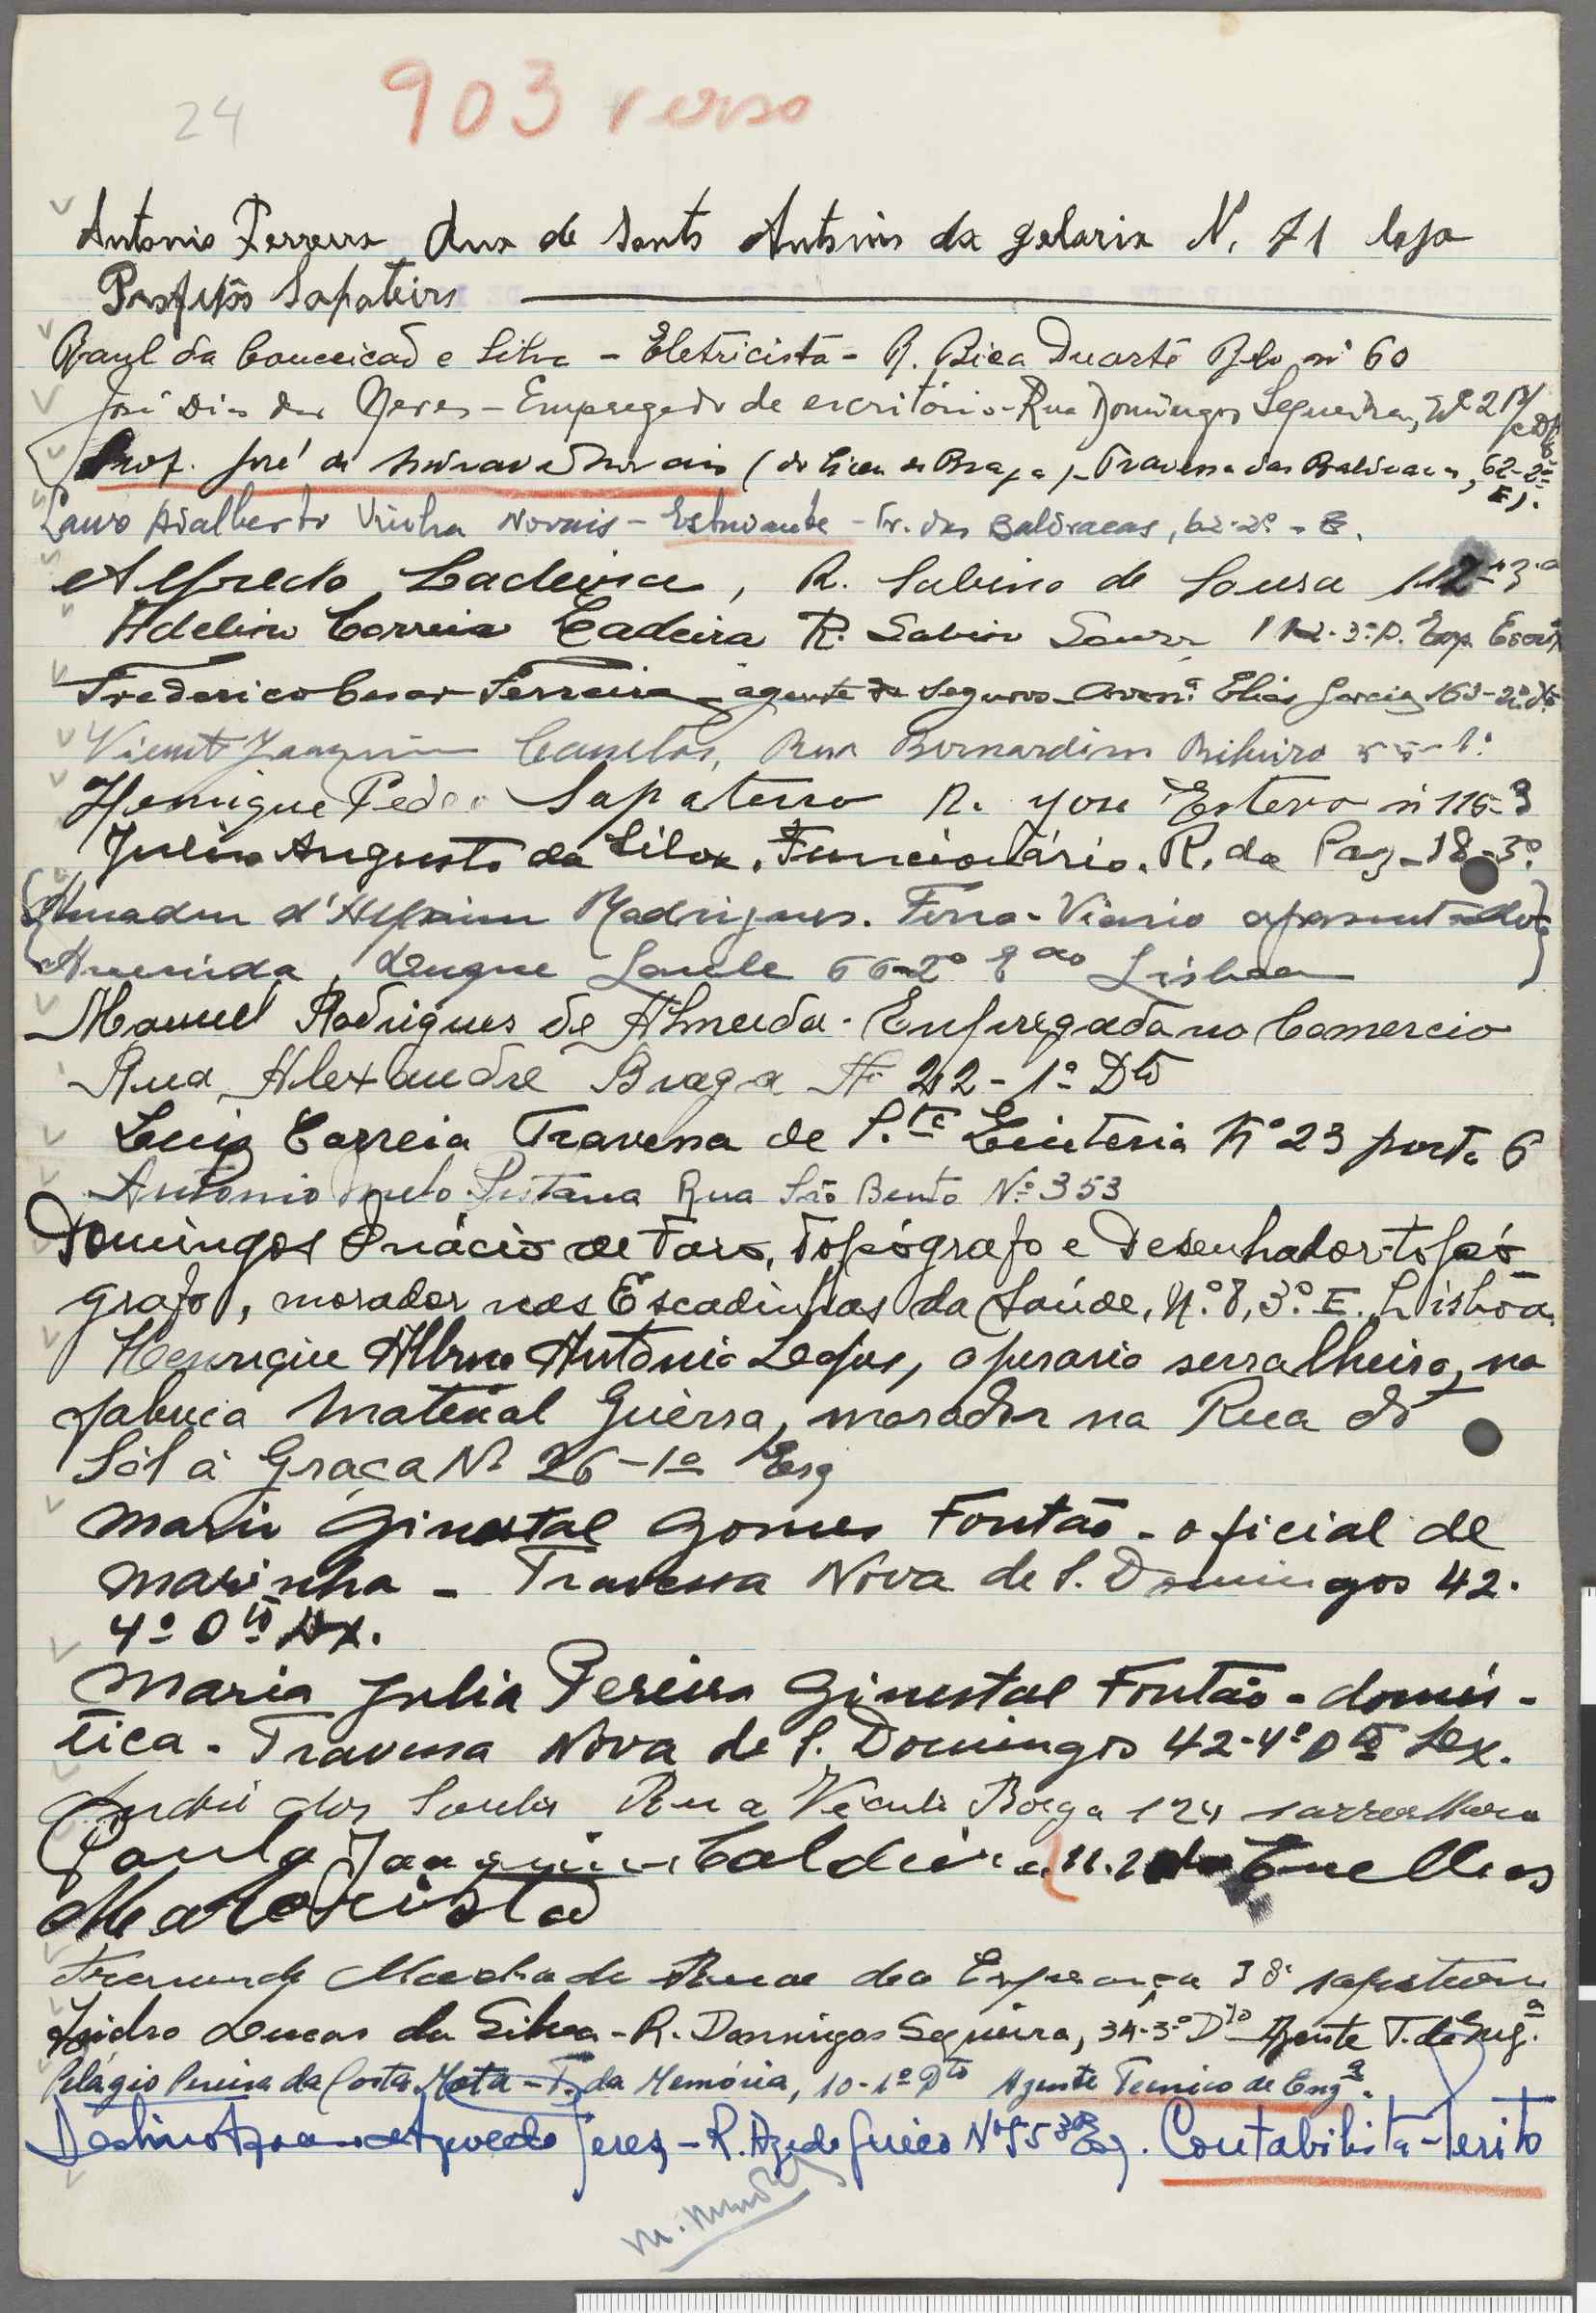 24
903 verso
Antonio Ferreira Rua de Santo Antonio da N. 71 loja
Sapateiro
Raul da Conceicão e Silva - Eletricista - R. Bica Duarte Belo nº 60
José Dias Neves - Empregado de escritório - Rua Domingos Sequeira, Nº 2
Prof. José de Morais (do Liceu de Braga) - Travessa das 62-2º
E).
Lauro Adalberto Vinha Novais - Estudante - Tr. das 62-2º - E.
Alfredo Cadeira, R. Sabino de Sousa 112-3º
Adelino Correia Cadeira R. Sabino Sousa 112-3º D. Emp. Escrit.
Frederico Cesar Ferreira - agente de Seguros - Aven.ª Elias Garcia 163-2º
Joaquim Rua Bernardim Ribeiro 55-1º
Henrique Pedro Sapateiro R. nº 115-3
Julio Augusto da Silva. Funcionário. R. da Paz - 18-3º.
Amadeu Rodrigues. Ferro-Viario aposentado
Avenida, Duque Loulé 66-2º Lisboa
Manuel Rodrigues de Almeida - Empregado no Comercio
Rua Alexandre Braga Nº 22 - 1º Dto
Luiz Correia Travessa de S.ta Quiteria Nº 23 porta 6
Antonio Pestana Rua São Bento Nº 353
Domingos Inácio de Faro, Topógrafo e Desenhador-topó-
grafo, morador nas Escadinhas da Saúde, N.º 8, 3.º E. Lisboa.
Henrique Antonio operario serralheiro, na
fabrica Material Guerra, morador na Rua do
Sól á Graça Nº 26-1º Esq
Mario Ginestal Gomes Fontão - oficial de
marinha - Travessa Nova de S. Domingos 42.
4º Dto Lx.
Maria Julia Pereira Ginestal Fontão - domés-
tica - Travessa Nova de S. Domingos 42-4º Dto Lx.
André dos Santos Rua Vicente Borga 124
Paulo Joaquim Caldeira
Machado Rua da Esperança 38
Isidro Lucas da Silva - R. Domingos Sequeira, 34-3º Dto Agente T. de Eng.ª
Pelágio Pereira da Costa Mota - T. da Memória, 10-1º Dto Agente Tecnico de Eng.ª
Azevedo - R. Nº 55 3º Esq. Contabilista-Perito